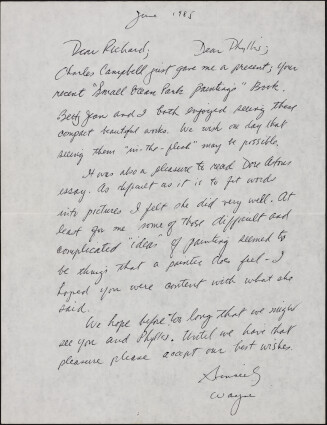 June 1985
Dear Richard; Dear Phyllis;
Charles Campbell just gave me a present; your
recent "Small Ocean Park paintings" Book.
Betty Jean and I both enjoyed seeing these
compact beautiful works. We wish one day that
seeing them "in-the-flesh" may be possible.
It was also a pleasure to read Dore Ashtons
essay. As difficult as it is to fit words
into pictures I felt she did very well. At
least for me some of those difficult and
complicated "ideas" of painting seemed to
be things that a painter does feel - I
hoped you were content with what she
said.
We hope before too long that we might
see you and Phyllis. Until we have that
pleasure please accept our best wishes.
Sincerely
Wayne